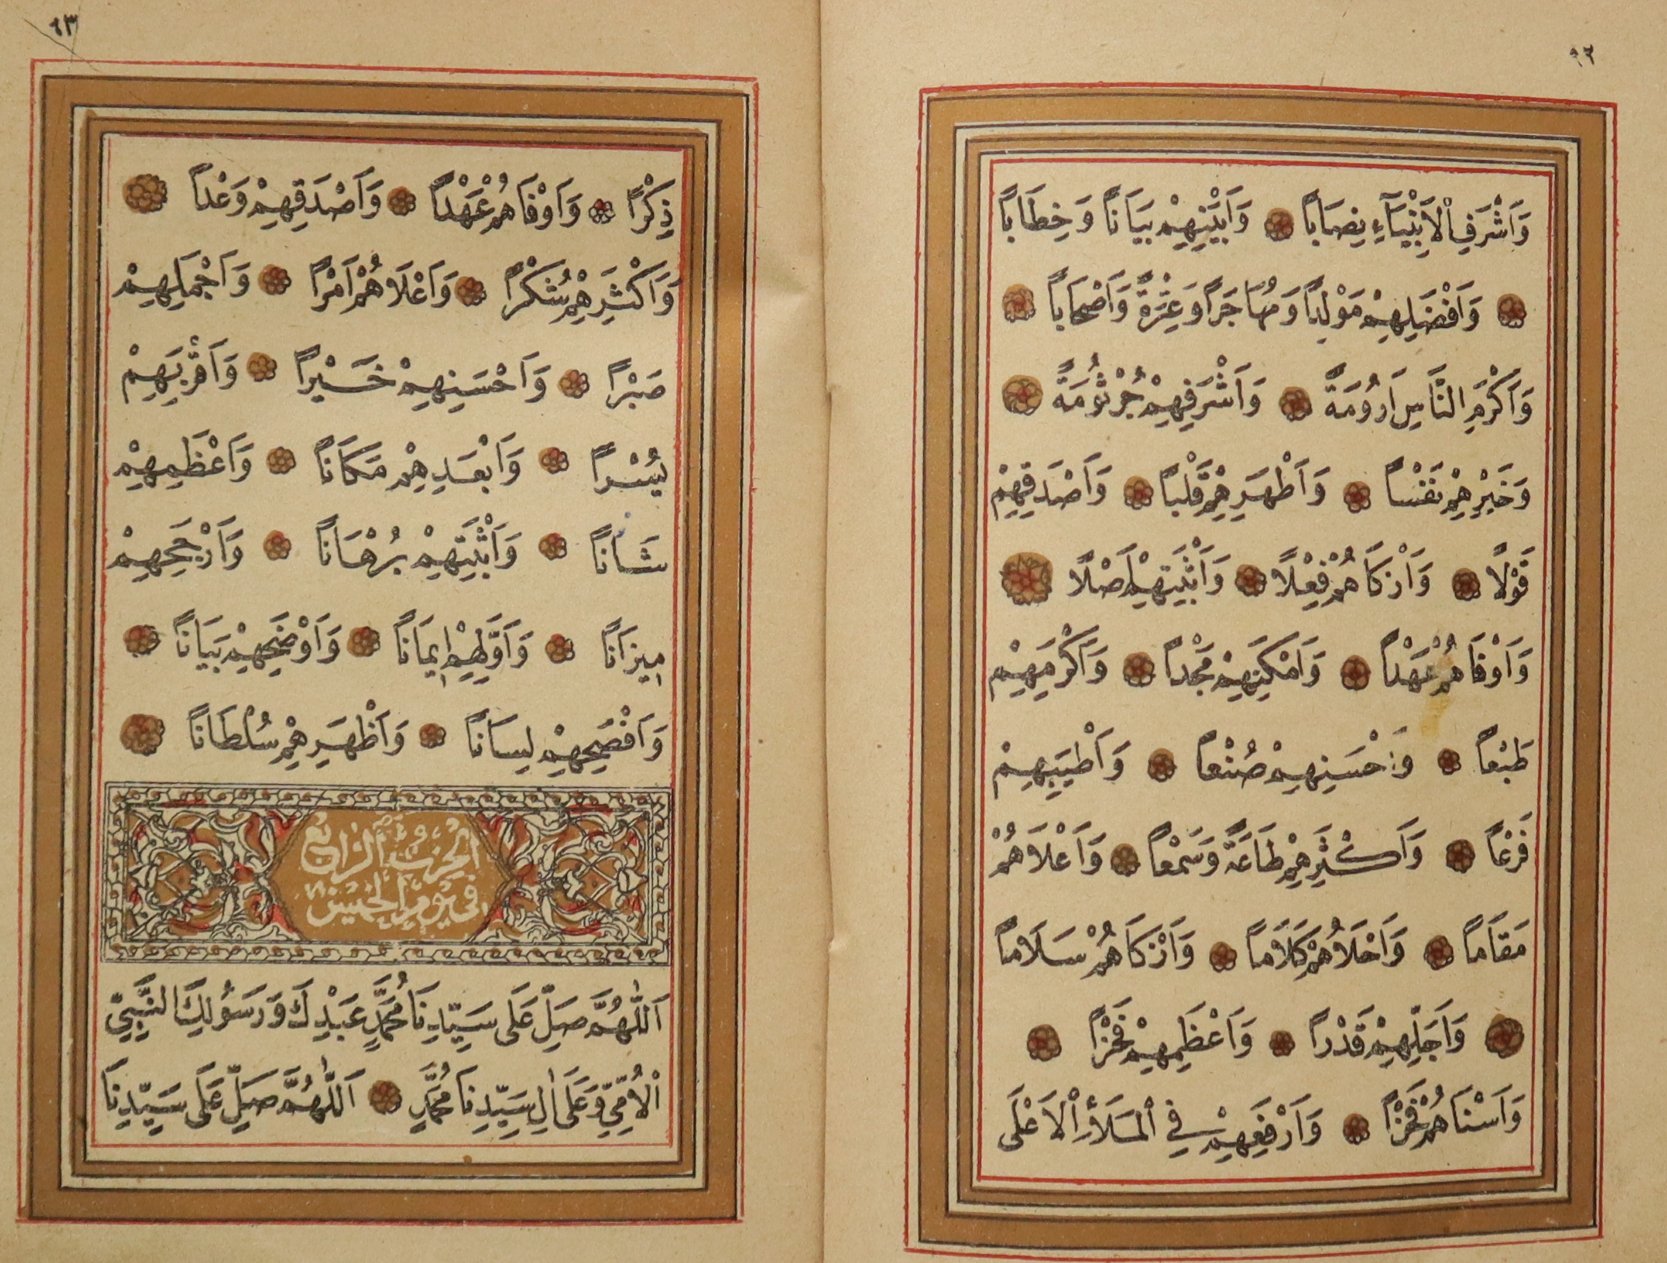 ٩٢
وَاَشْرَفِ الْاَنْبِيَآءِ نِصَاباً وَاَبْيَنِهِمْ بَيَاناً وَخِطَاباً
وَاَفْضَلِهِمْ مَوْلِداً وَمُهَاجَراً وَعِتْرَةً وَاَصْحَاباً
وَاَكْرَمِ النَّاسِ اَرُومَةً وَاَشْرَفِهِمْ جُرْثُومَةً
وَخَيْرِهِمْ نَفْساً وَاَطْهَرِهِمْ قَلْباً وَاَصْدَقِهِمْ
قَوْلاً وَاَزْكَاهُمْ فِعْلاً وَاَثْبَتِهِمْ اَصْلاً
وَاَوْفَاهُمْ عَهْداً وَاَمْكَنِهِمْ مَجْداً وَاَكْرَمِهِمْ
طَبْعاً وَاَحْسَنِهِمْ صُنْعاً وَاَطْيَبِهِمْ
فَرْعاً وَاَكْثَرِهِمْ طَاعَةً وَسَمْعاً وَاَعْلَاهُمْ
مَقَاماً وَاَحْلَاهُمْ كَلَاماً وَاَزْكَاهُمْ سَلَاماً
وَاَجَلِّهِمْ قَدْراً وَاَعْظَمِهِمْ فَخْراً
وَاَسْنَاهُمْ فَخْراً وَاَرْفَعِهِمْ فِي الْمَلَأِ الْاَعْلَى
٩٣
ذِكْراً وَاَوْفَاهُمْ عَهْداً وَاَصْدَقِهِمْ وَعْداً
وَاَكْثَرِهِمْ شُكْراً وَاَعْلَاهُمْ اَمْراً وَاَجْمَلِهِمْ
صَبْراً وَاَحْسَنِهِمْ خَيْراً وَاَقْرَبِهِمْ
يُسْراً وَاَبْعَدِهِمْ مَكَاناً وَاَعْظَمِهِمْ
شَاناً وَاَثْبَتِهِمْ بُرْهَاناً وَاَرْجَحِهِمْ
مِيزَاناً وَاَوَّلِهِمْ اِيمَاناً وَاَوْضَحِهِمْ بَيَاناً
وَاَفْصَحِهِمْ لِسَاناً وَاَظْهَرِهِمْ سُلْطَاناً
اَلْحِزْبُ الرَّابِعُ
فِى يَوْمِ الْخَمِيسِ
اَللّٰهُمَّ صَلِّ عَلَى سَيِّدِنَا مُحَمَّدٍ عَبْدِكَ وَرَسُولِكَ النَّبِيِّ
الْاُمِّيِّ وَعَلَى اٰلِ سَيِّدِنَا مُحَمَّدٍ اَللّٰهُمَّ صَلِّ عَلَى سَيِّدِنَا